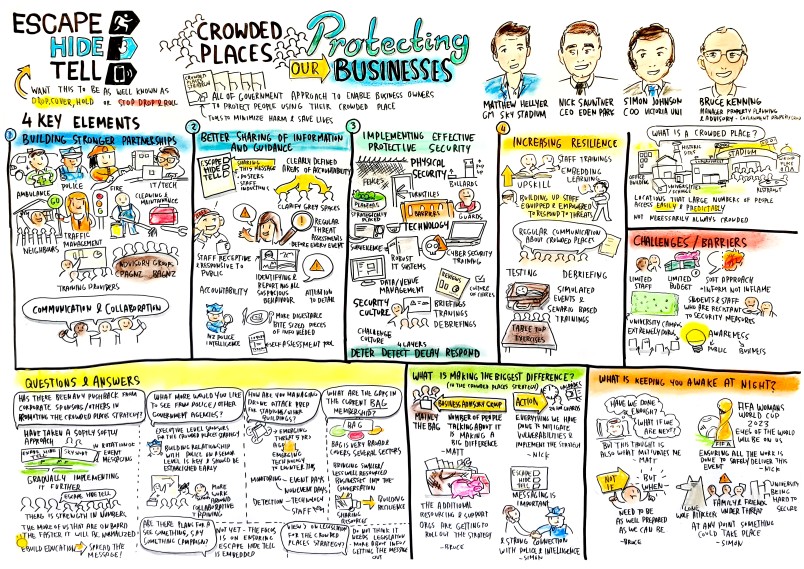 ESCAPE
HIDE
TELL
WANT THIS TO BE AS WELL KNOWN AS
DROP, COVER, HOLD OR STOP DROP & ROLL
CROWDED
PLACES
Protecting
OUR
BUSINESSES
CROWDED
PLACES
STRATEGY
ALL OF GOVERNMENT APPROACH TO ENABLE BUSINESS OWNERS
TO PROTECT PEOPLE USING THEIR CROWDED PLACE
TO MINIMIZE HARM & SAVE LIVES
MATTHEW HELLYER
GM SKY STADIUM
NICK SAUNTNER
CEO EDEN PARK
SIMON JOHNSON
COO VICTORIA UNI
BRUCE KENNING
MANAGER PROPERTY PLANNING
& ADVISORY
4 KEY ELEMENTS
1
BUILDING STRONGER PARTNERSHIPS
AMBULANCE
POLICE
FIRE
IT/TECH
GO
TRAFFIC
MANAGEMENT
CLEANING &
MAINTENANCE
NEIGHBORS
TRAINING PROVIDERS
ADVISORY GROUP
CPAGNZ BAGNZ
COMMUNICATION & COLLABORATION
2
BETTER SHARING OF INFORMATION
AND GUIDANCE
ESCAPE
HIDE
TELL
SHARING
THIS MESSAGE
- POSTERS
- STAFF
INDUCTIONS
CLEARLY DEFINED
AREAS OF ACCOUNTABILITY
CLARIFY GREY SPACES
REGULAR
THREAT
ASSESSMENTS
BEFORE EVERY EVENT
STAFF RECEPTIVE
& RESPONSIVE TO
PUBLIC
ACCOUNTABILITY
IDENTIFYING &
REPORTING ALL
SUSPICIOUS
BEHAVIOR
ATTENTION
TO DETAIL
NZ POLICE
INTELLIGENCE
MORE DIGESTABLE
BITE SIZED PIECES
OF INFO NEEDED
SELF ASSESSMENT TOOL
3
IMPLEMENTING EFFECTIVE
PROTECTIVE SECURITY
PHYSICAL
SECURITY
FENCES
BOLLARDS
TURNSTILES
PLANTERS
STRATEGICALLY
PLACED
BARRIERS
GUARDS
TECHNOLOGY
SURVEILLANCE
ROBUST
IT SYSTEMS
CYBER SECURITY
TRAINING
DATA/VENUE
MANAGEMENT
SECURITY
CULTURE
BRIEFINGS
TRAININGS
DEBRIEFINGS
CHALLENGE
CULTURE
4 LAYERS
DETER DETECT DELAY RESPOND
4
INCREASING RESILIENCE
UPSKILL
STAFF TRAININGS
EMBEDDING
LEARNING
BUILDING UP STAFF
EQUIPPED & EMPOWERED
TO RESPOND TO THREATS
REGULAR COMMUNICATION
ABOUT CROWDED PLACES
TESTING
DEBRIEFING
SIMULATED
EVENTS &
SENARIO BASED
TRAININGS
TABLE TOP
EXERCISES
WHAT IS A CROWDED PLACE?
OFFICE
BUILDING
HISTORIC
SITES
STADIUM
UNIVERSITIES
RESTAURANT
LOCATIONS THAT LARGE NUMBERS OF PEOPLE
ACCESS EASILY & PREDICTABLY
NOT NECESSARILY ALWAYS CROWDED
CHALLENGES / BARRIERS
LIMITED
STAFF
LIMITED
BUDGET
SOFT APPROACH
- INFORM NOT INFLAME
STUDENTS & STAFF
WHO ARE RESISTANT
TO SECURITY MEASURES
UNIVERSITY CAMPUS
EXTREMELY PUBLIC
AWARENESS
PUBLIC
BUSINESS
QUESTIONS & ANSWERS
HAS THERE BEEN ANY PUSHBACK FROM
CORPORATE SPONSORS/OTHERS IN
ADOPTING THE CROWDED PLACES STRATEGY?
HAVE TAKEN A SOFTLY SOFTLY
APPROACH
IN ROTATION OF
EVENT
MESSAGING
GRADUALLY IMPLEMENTING
IT FURTHER
ESCAPE HIDE TELL
THERE IS STRENGTH IN NUMBERS
THE MORE OF US THAT ARE ON BOARD
THE FASTER IT WILL BE NORMALIZED
BUILD EDUCATION SPREAD THE
MESSAGE!
WHAT MORE WOULD YOU LIKE
TO SEE FROM POLICE / OTHER
GOVERNMENT AGENCIES?
EXECUTIVE LEVEL SPONSORS
ON THE CROWDED PLACES STRATEGY
BUILDING RELATIONSHIP
WITH POLICE ON SENIOR
LEVEL IS KEY & SHOULD BE
ESTABLISHED EARLY
MORE
WORK
AROUND
COLLABORATIVE
TRAINING
ARE THERE PLANS FOR A
SEE SOMETHING, SAY
SOMETHING CAMPAIGN?
NOT YET - THE FOCUS
IS ON ENSURING
ESCAPE HIDE TELL
IS EMBEDDED
HOW ARE YOU MANAGING
DRONE ATTACK RISKS
FOR STADIUMS/OTHER
BUILDINGS?
EMERGING
THREAT
EMERGING
TECHNOLOGY
TO COUNTER THIS
MONITORING - EVENT DAYS
NON EVENT DAYS
DETECTION - TECHNOLOGY
STAFF
WHAT ARE THE GAPS IN
THE CURRENT BAG
MEMBERSHIP?
BAG
BAG IS VERY BROAD &
COVERS SEVERAL SECTORS
BRINGING SMALLER/
LESS WELL RESOURCED
BUSINESSES INTO THE
CONVERSATION
SHARING
RESOURCES
BUILDING
RESILIENCE
VIEW ON LEGISLATION
FOR THE CROWDED
PLACES STRATEGY?
DO NOT THINK IT
NEEDS LEGISLATION
- MORE ABOUT INFO/
GETTING THE MESSAGE
OUT
WHAT IS MAKING THE BIGGEST DIFFERENCE?
(TO THE CROWDED PLACES STRATEGY)
BUSINESS ADVISORY GROUP
MATNEY
THE BAG
NUMBER OF PEOPLE
TALKING ABOUT IT
IS MAKING A
BIG DIFFERENCE
- MATT
ACTION
EVERYTHING WE
HAVE DONE TO
MITIGATE
VULNERABILITIES &
IMPLEMENT THE STRATEGY
- NICK
THE ADDITIONAL
RESOURCING & SUPPORT
ORGS ARE GETTING TO
ROLL OUT THE STRATEGY
- BRUCE
ESCAPE
HIDE
TELL
MESSAGING IS
IMPORTANT
& STRONG CONNECTION
WITH POLICE & INTELLIGENCE
- SIMON
WHAT IS KEEPING YOU AWAKE AT NIGHT?
HAVE WE DONE
ENOUGH?
WHAT IF WE
ARE NEXT?
BUT THIS THOUGHT IS
ALSO WHAT MOTIVATES ME
- MATT
FIFA
FIFA WOMANS
WORLD CUP
2023
EYES OF THE WORLD
WILL BE ON US
ENSURING ALL THE WORK IS
DONE TO SAFELY DELIVER THIS
EVENT
- NICK
NOT IF
BUT
WHEN
NEED TO BE
AS WELL PREPARED
AS WE CAN BE
- BRUCE
LONE
WOLF ATTACKER
FAMILY & FRIENDS
UNDER THREAT
UNIVERSITY
BEING
HARD TO
SECURE
AT ANY POINT SOMETHING
COULD TAKE PLACE
- SIMON